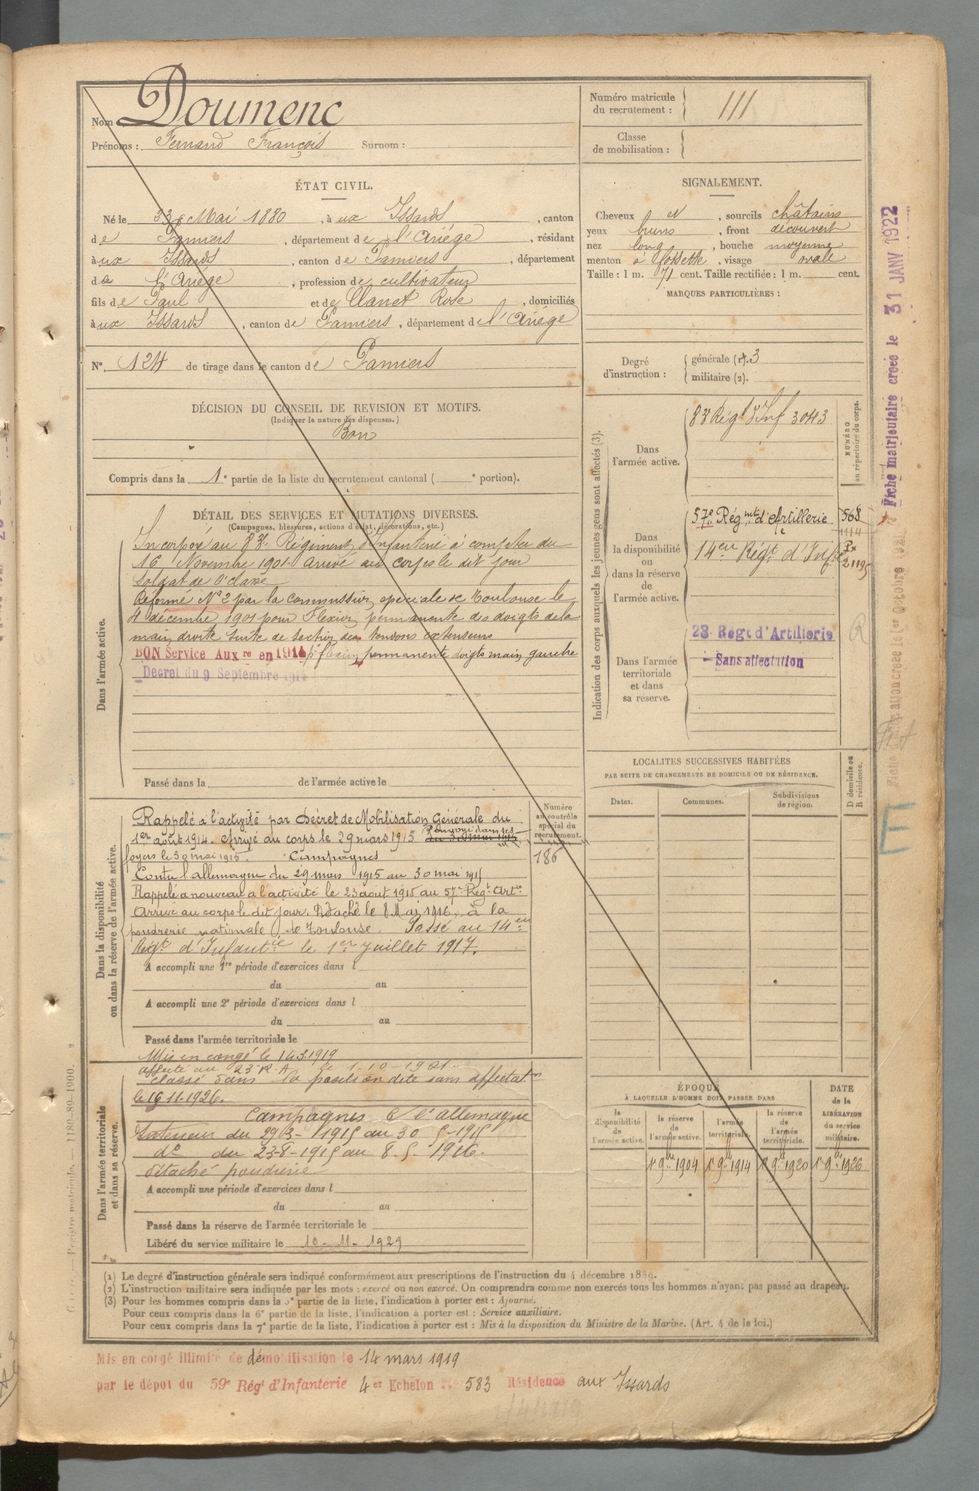 Nom Doumenc
Prénoms : Fernand François Surnom :
Numéro matricule du recrutement : 111
Classe de mobilisation :
ÉTAT CIVIL.
Né le Mai 1880, à ux Issards, canton
de Pamiers, département de l'Ariège, résidant
à ux Issards, canton de Pamiers, département
de l'Ariège, profession de cultivateur
fils de Paul et de Rose, domiciliés
à ux Issards, canton de Pamiers, département de l'Ariège
N° 124 de tirage dans le canton de Pamiers
SIGNALEMENT.
Cheveux et, sourcils châtains
yeux bruns, front découvert
nez long, bouche moyenne
menton à fossette, visage ovale
Taille : 1 m. 71 cent. Taille rectifiée : 1 m. cent.
MARQUES PARTICULIÈRES :
Degré d'instruction : générale (1). 3
militaire (2).
DÉCISION DU CONSEIL DE REVISION ET MOTIFS.
(Indiquer la nature des dispenses.)
Bon
Compris dans la 1e partie de la liste du recrutement cantonal ( e portion).
DÉTAIL DES SERVICES ET MUTATIONS DIVERSES.
(Campagnes, blessures, actions d'éclat, décorations, etc.)
Dans l'armée active.
Incorporé au 83e Régiment d'Infanterie à compter du
16 Novembre 1901. Arrivé au corps le dit jour
soldat de 2e classe
Réformé N° 2 par la commission spéciale de Toulouse le
4 décembre 1901 pour Flexion permanente des doigts de la
main droite suite de section des tendons extenseurs
BON Service Auxre en 1914 p. flexion permanente doigts main gauche
Décret du 9 Septembre 1914
Passé dans la de l'armée active le
Indication des corps auxquels les jeunes gens sont affectés (3).
Dans l'armée active.
83e Régt d'Inf 3043
NUMÉRO au répertoire du corps.
Dans la disponibilité ou dans la réserve de l'armée active.
57e Régmt d'Artillerie 568
1114
14eme Régt d'Infie
Dans l'armée territoriale et dans sa réserve.
23e Régt d'Artillerie
Sans affectation
R
LOCALITÉS SUCCESSIVES HABITÉES
PAR SUITE DE CHANGEMENTS DE DOMICILE OU DE RÉSIDENCE.
Dates. Communes. Subdivisions de région.
D domicile ou R résidence.
Dans la disponibilité ou dans la réserve de l'armée active.
Numéro au contrôle spécial du recrutement.
186
Rappelé à l'activité par Décret de Mobilisation Générale du
1er août 1914. Arrivé au corps le 29 mars 1915 Renvoyé dans ses
foyers le 30 mai 1915. Campagnes
Contre l'allemagne du 29 mars 1915 au 30 mai 1915
Rappelé à nouveau à l'activité le 23 août 1915 au 57e Régt Artie
Arrivé au corps le dit jour. Détaché le 8 Mai 1916 à la
poudrerie nationale de Toulouse. Passé au 14eme
Régt d'Infanterie le 1er Juillet 1917.
A accompli une 1re période d'exercices dans l
du au
A accompli une 2e période d'exercices dans l
du au
Passé dans l'armée territoriale le
Dans l'armée territoriale et dans sa réserve.
Mis en congé le 14 3 1919
affecté au 23 R. A. le 1-10-1921
classé dans la position dite sans affectation
le 19.11.1926.
Campagnes C. l'allemagne
Intérieur du 29-3-1915 au 30-5-1915
do du 23-8-1915 au 8-5-1916.
Détaché poudrerie
A accompli une période d'exercices dans l
du au
Passé dans la réserve de l'armée territoriale le
Libéré du service militaire le 10-11-1929
ÉPOQUE
À LAQUELLE L'HOMME DOIT PASSER DANS
la disponibilité de l'armée active.
la réserve de l'armée active.
l'armée territoriale.
la réserve de l'armée territoriale.
DATE de la LIBÉRATION du service militaire.
1er 9bre 1904 1er 9bre 1914 1er 9bre 1920 1er 9bre 1926
(1) Le degré d'instruction générale sera indiqué conformément aux prescriptions de l'instruction du 4 décembre 1889.
(2) L'instruction militaire sera indiquée par les mots : exercé ou non exercé. On comprendra comme non exercés tous les hommes n'ayant pas passé au drapeau.
(3) Pour les hommes compris dans la 5e partie de la liste, l'indication à porter est : Ajourné.
Pour ceux compris dans la 6e partie de la liste, l'indication à porter est : Service auxiliaire.
Pour ceux compris dans la 7e partie de la liste, l'indication à porter est : Mis à la disposition du Ministre de la Marine. (Art. 4 de la loi.)
Mis en congé illimité de démobilisation le 14 mars 1919
par le dépôt du 59e Régt d'Infanterie 4er Echelon N° 583 Résidence aux Issards
Fiche matriculaire créée le 31 JANV 1922
E